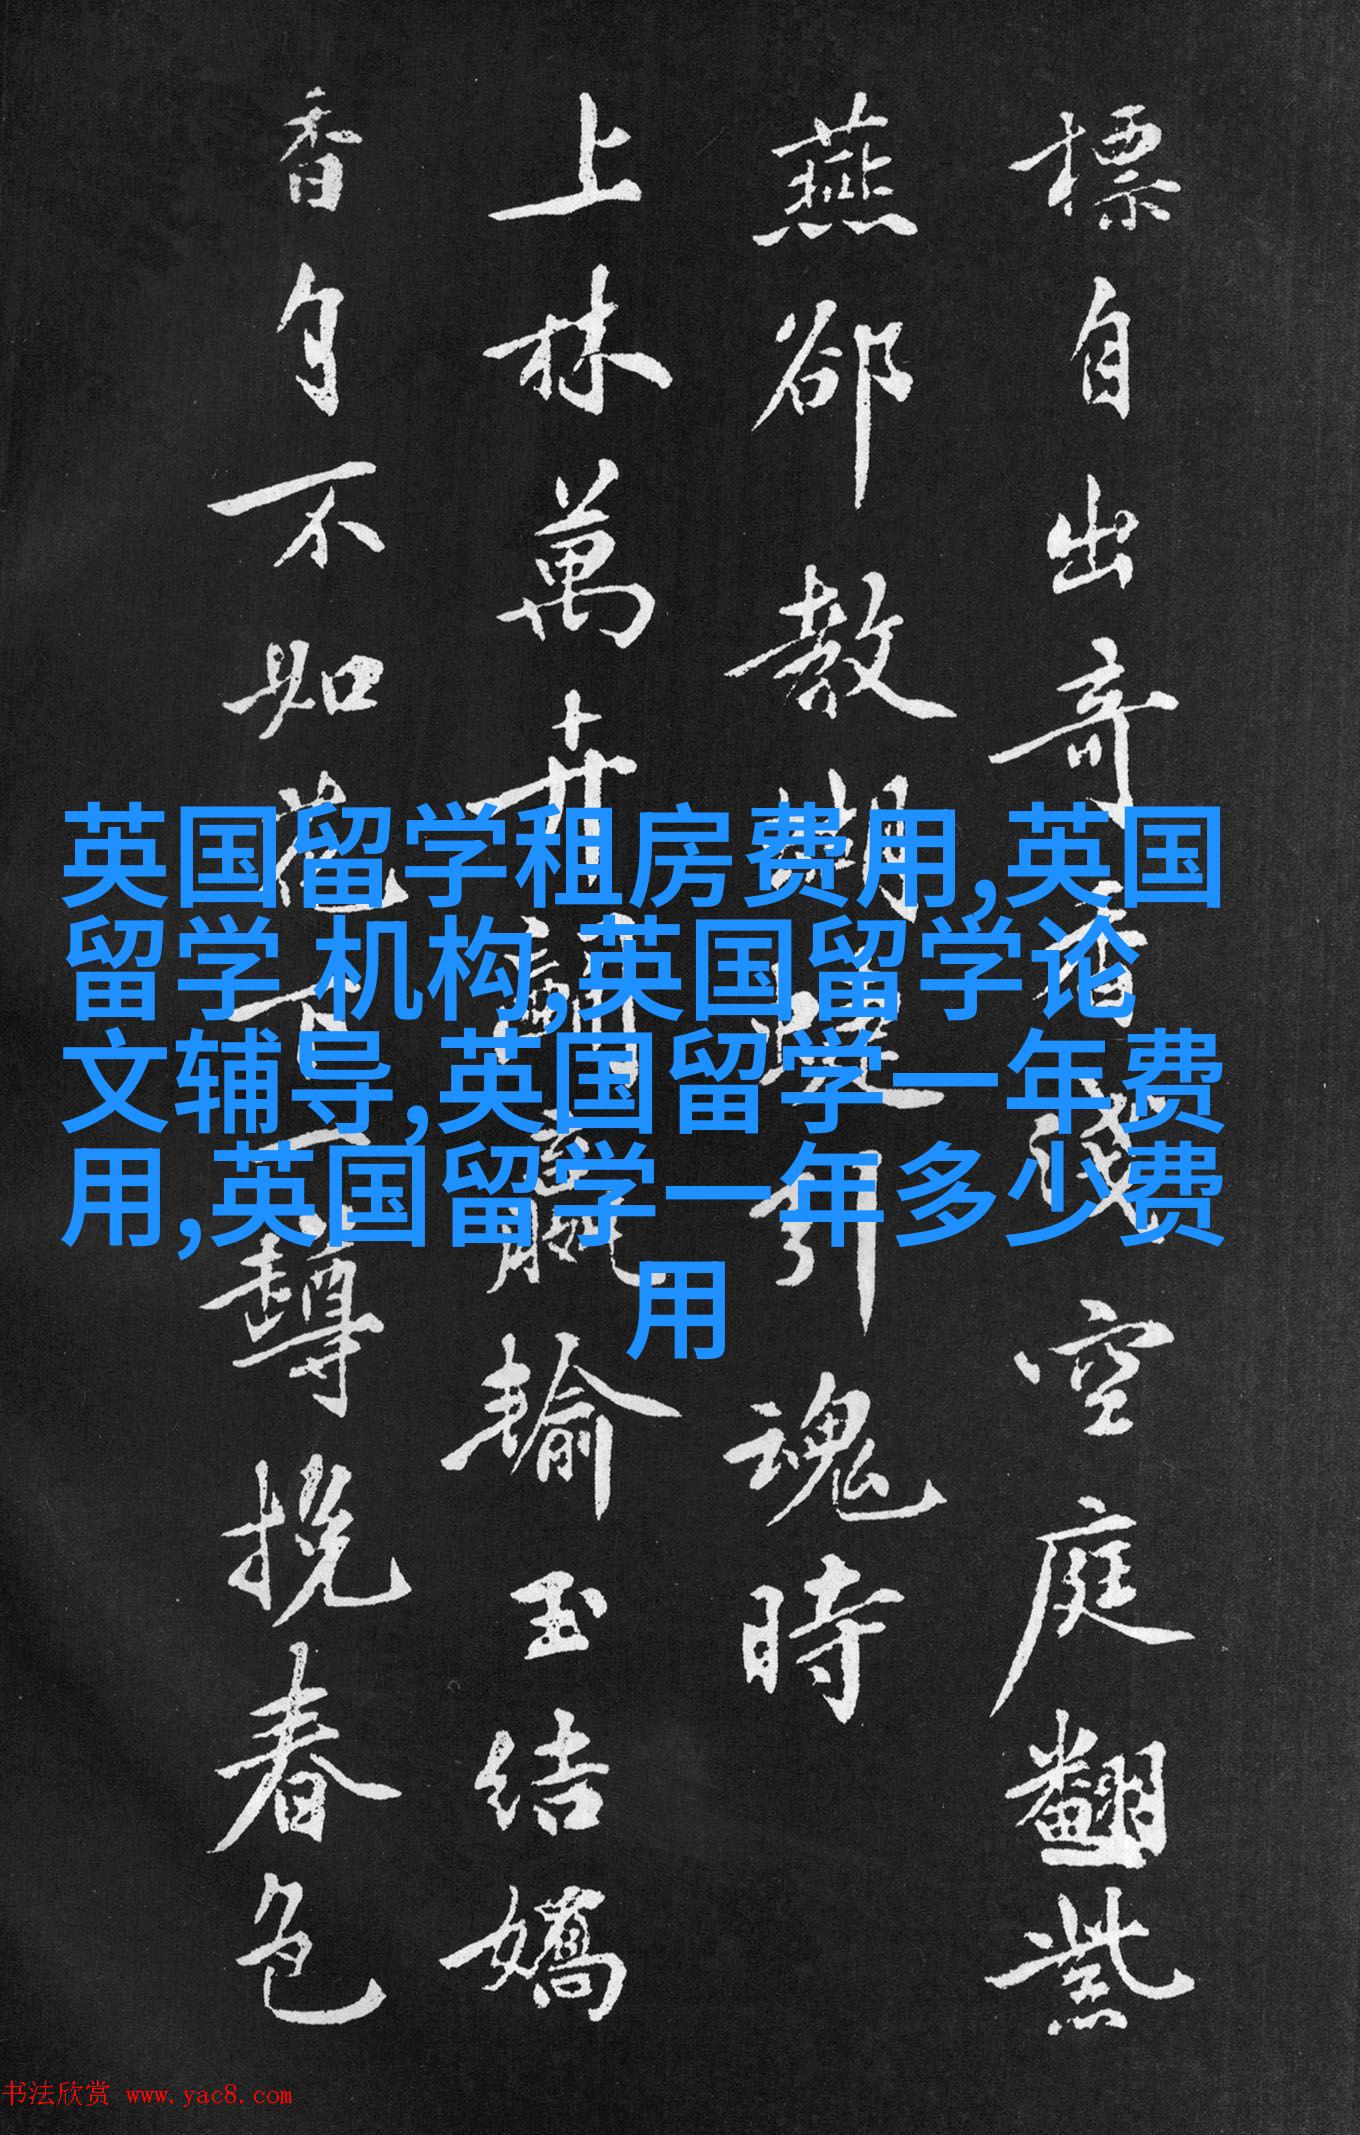 標自出奇香淺空庭翻紫
燕郤教胡蝶引魂時
上林萬卉鬪贏輸玉結嬌
香自不如花下一尊挽春色
英国留学租房费用,英国
留学 机构,英国留学论
文辅导,英国留学一年费
用,英国留学一年多少费
用
书法欣赏 www.yac8.com